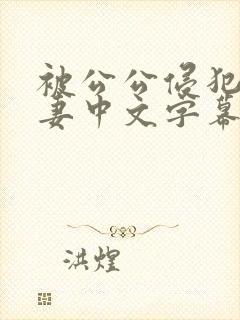 被公公侵犯
妻中文字幕
洪煌